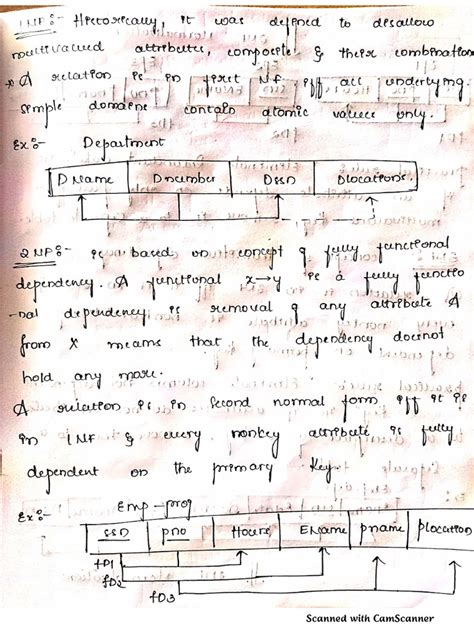 1NF:- Historically, it was defined to disallow
multivalued attributes, composite & their combination
* A relation is in first NF iff all underlying
simple domains contain atomic values only.
Ex:- Department
DName Dnumber DSSN Dlocations.
2NF:- is based on concept of fully functional
dependency. A functional x→y is a fully functio
-nal dependency if removal of any attribute A
from X means that the dependency doesnot
hold any more.
A relation is in second normal form iff it is
in 1NF & every nonkey attribute is fully
dependent on the primary key.
Ex:- Emp-proj
SSN pno Hours EName pname plocation
fD1
fD2
fD3
Scanned with CamScanner